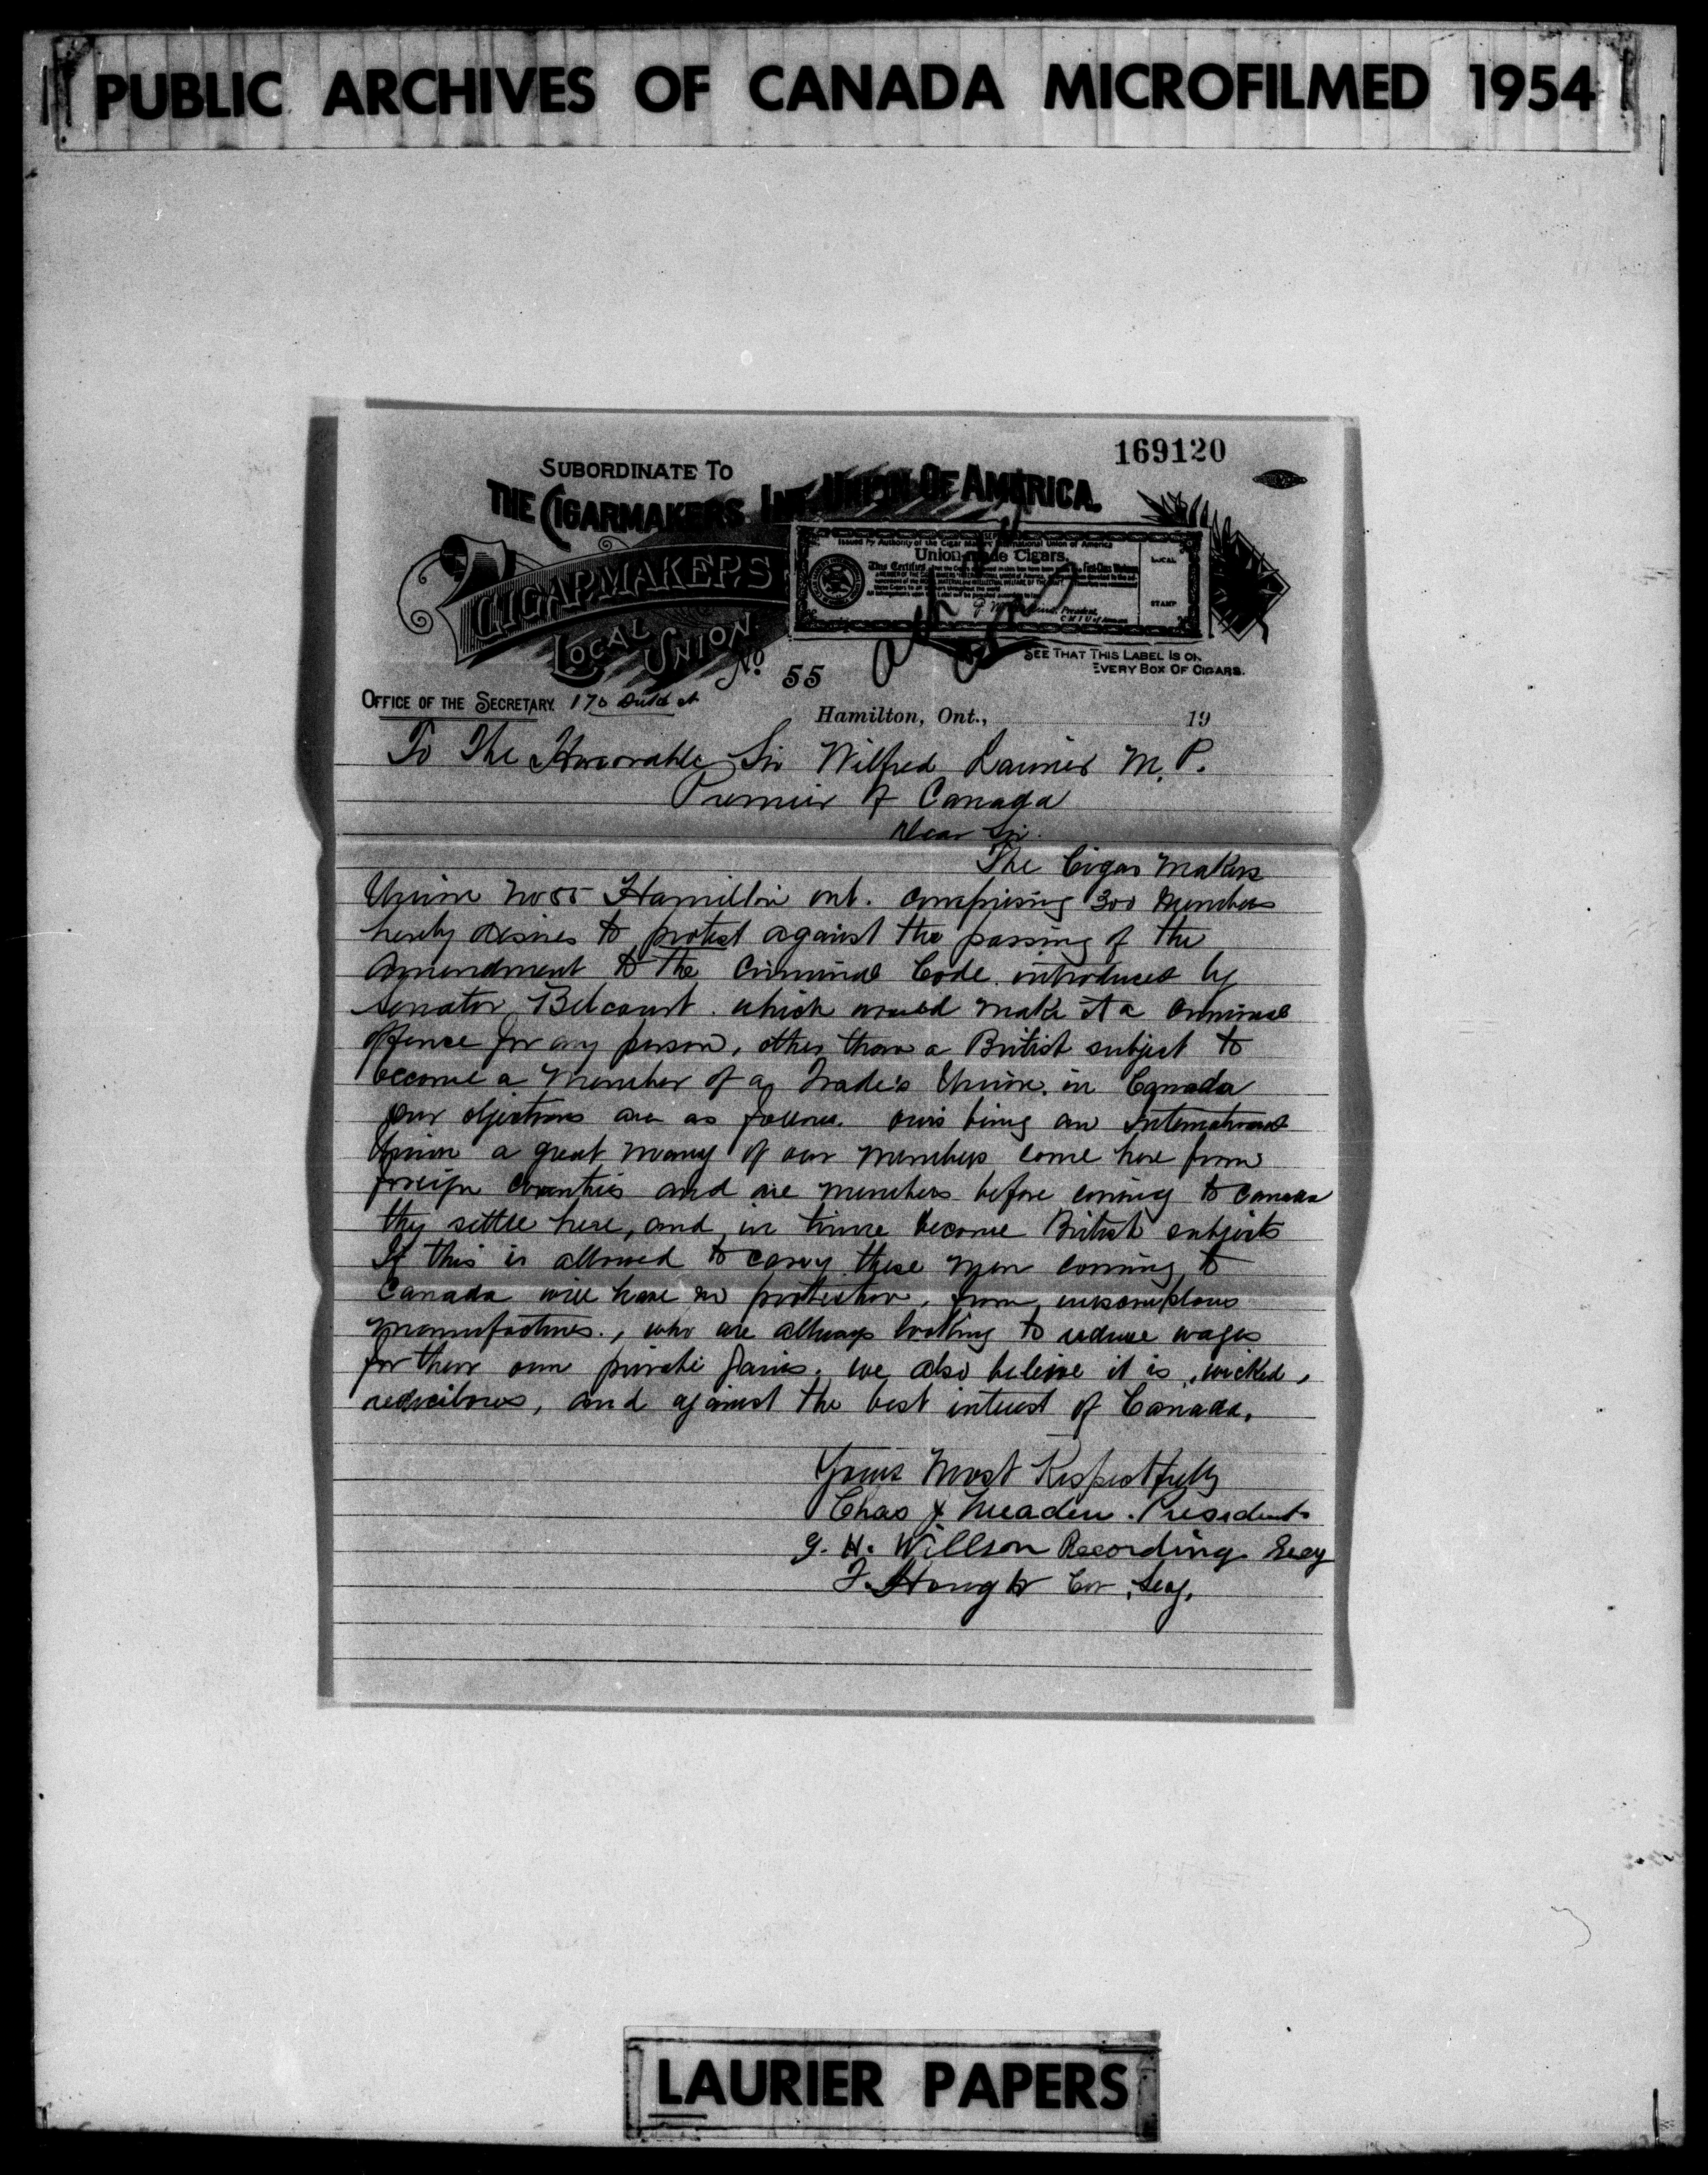 PUBLIC ARCHIVES OF CANADA MICROFILMED 1954
169120
SUBORDINATE TO
THE CIGARMAKERS INT. UNION OF AMERICA.
Issued by Authority of the Cigar Makers' International Union of America
Union-made Cigars.
This Certifies
First-Class Workman
LOCAL
STAMP
President,
C M I U of America
CIGARMAKERS
LOCAL UNION
No. 55
SEE THAT THIS LABEL IS ON
EVERY BOX OF CIGARS.
OFFICE OF THE SECRETARY. 170 st
Hamilton, Ont., 19
To The Honorable Sir Wilfred Laurier M. P.
Premier of Canada
Dear Sir.
The Cigar Makers
Union No 55 Hamilton ont. comprising 300 Members
hereby desires to protest against the passing of the
Amendment to the Criminal Code introduced by
Senator Belcourt. which would make it a Criminal
offence for any person, other than a British subject to
become a Member of a Trade's Union. in Canada
our objections are as follows. ours being an International
Union a great many of our members come here from
foreign countries and are members before coming to Canada
they settle here, and in time become British subjects
If this is allowed to carry these men coming to
Canada will have no protection, from
manufactures., who are allways looking to reduce wages
for there own private gains. we also beleive it is, wicked,
and against the best interest of Canada.
Yours Most Respectfully
Chas Meaden. President
G. H. Willson Recording Secy
F. Hough Cor. Secy.
LAURIER PAPERS